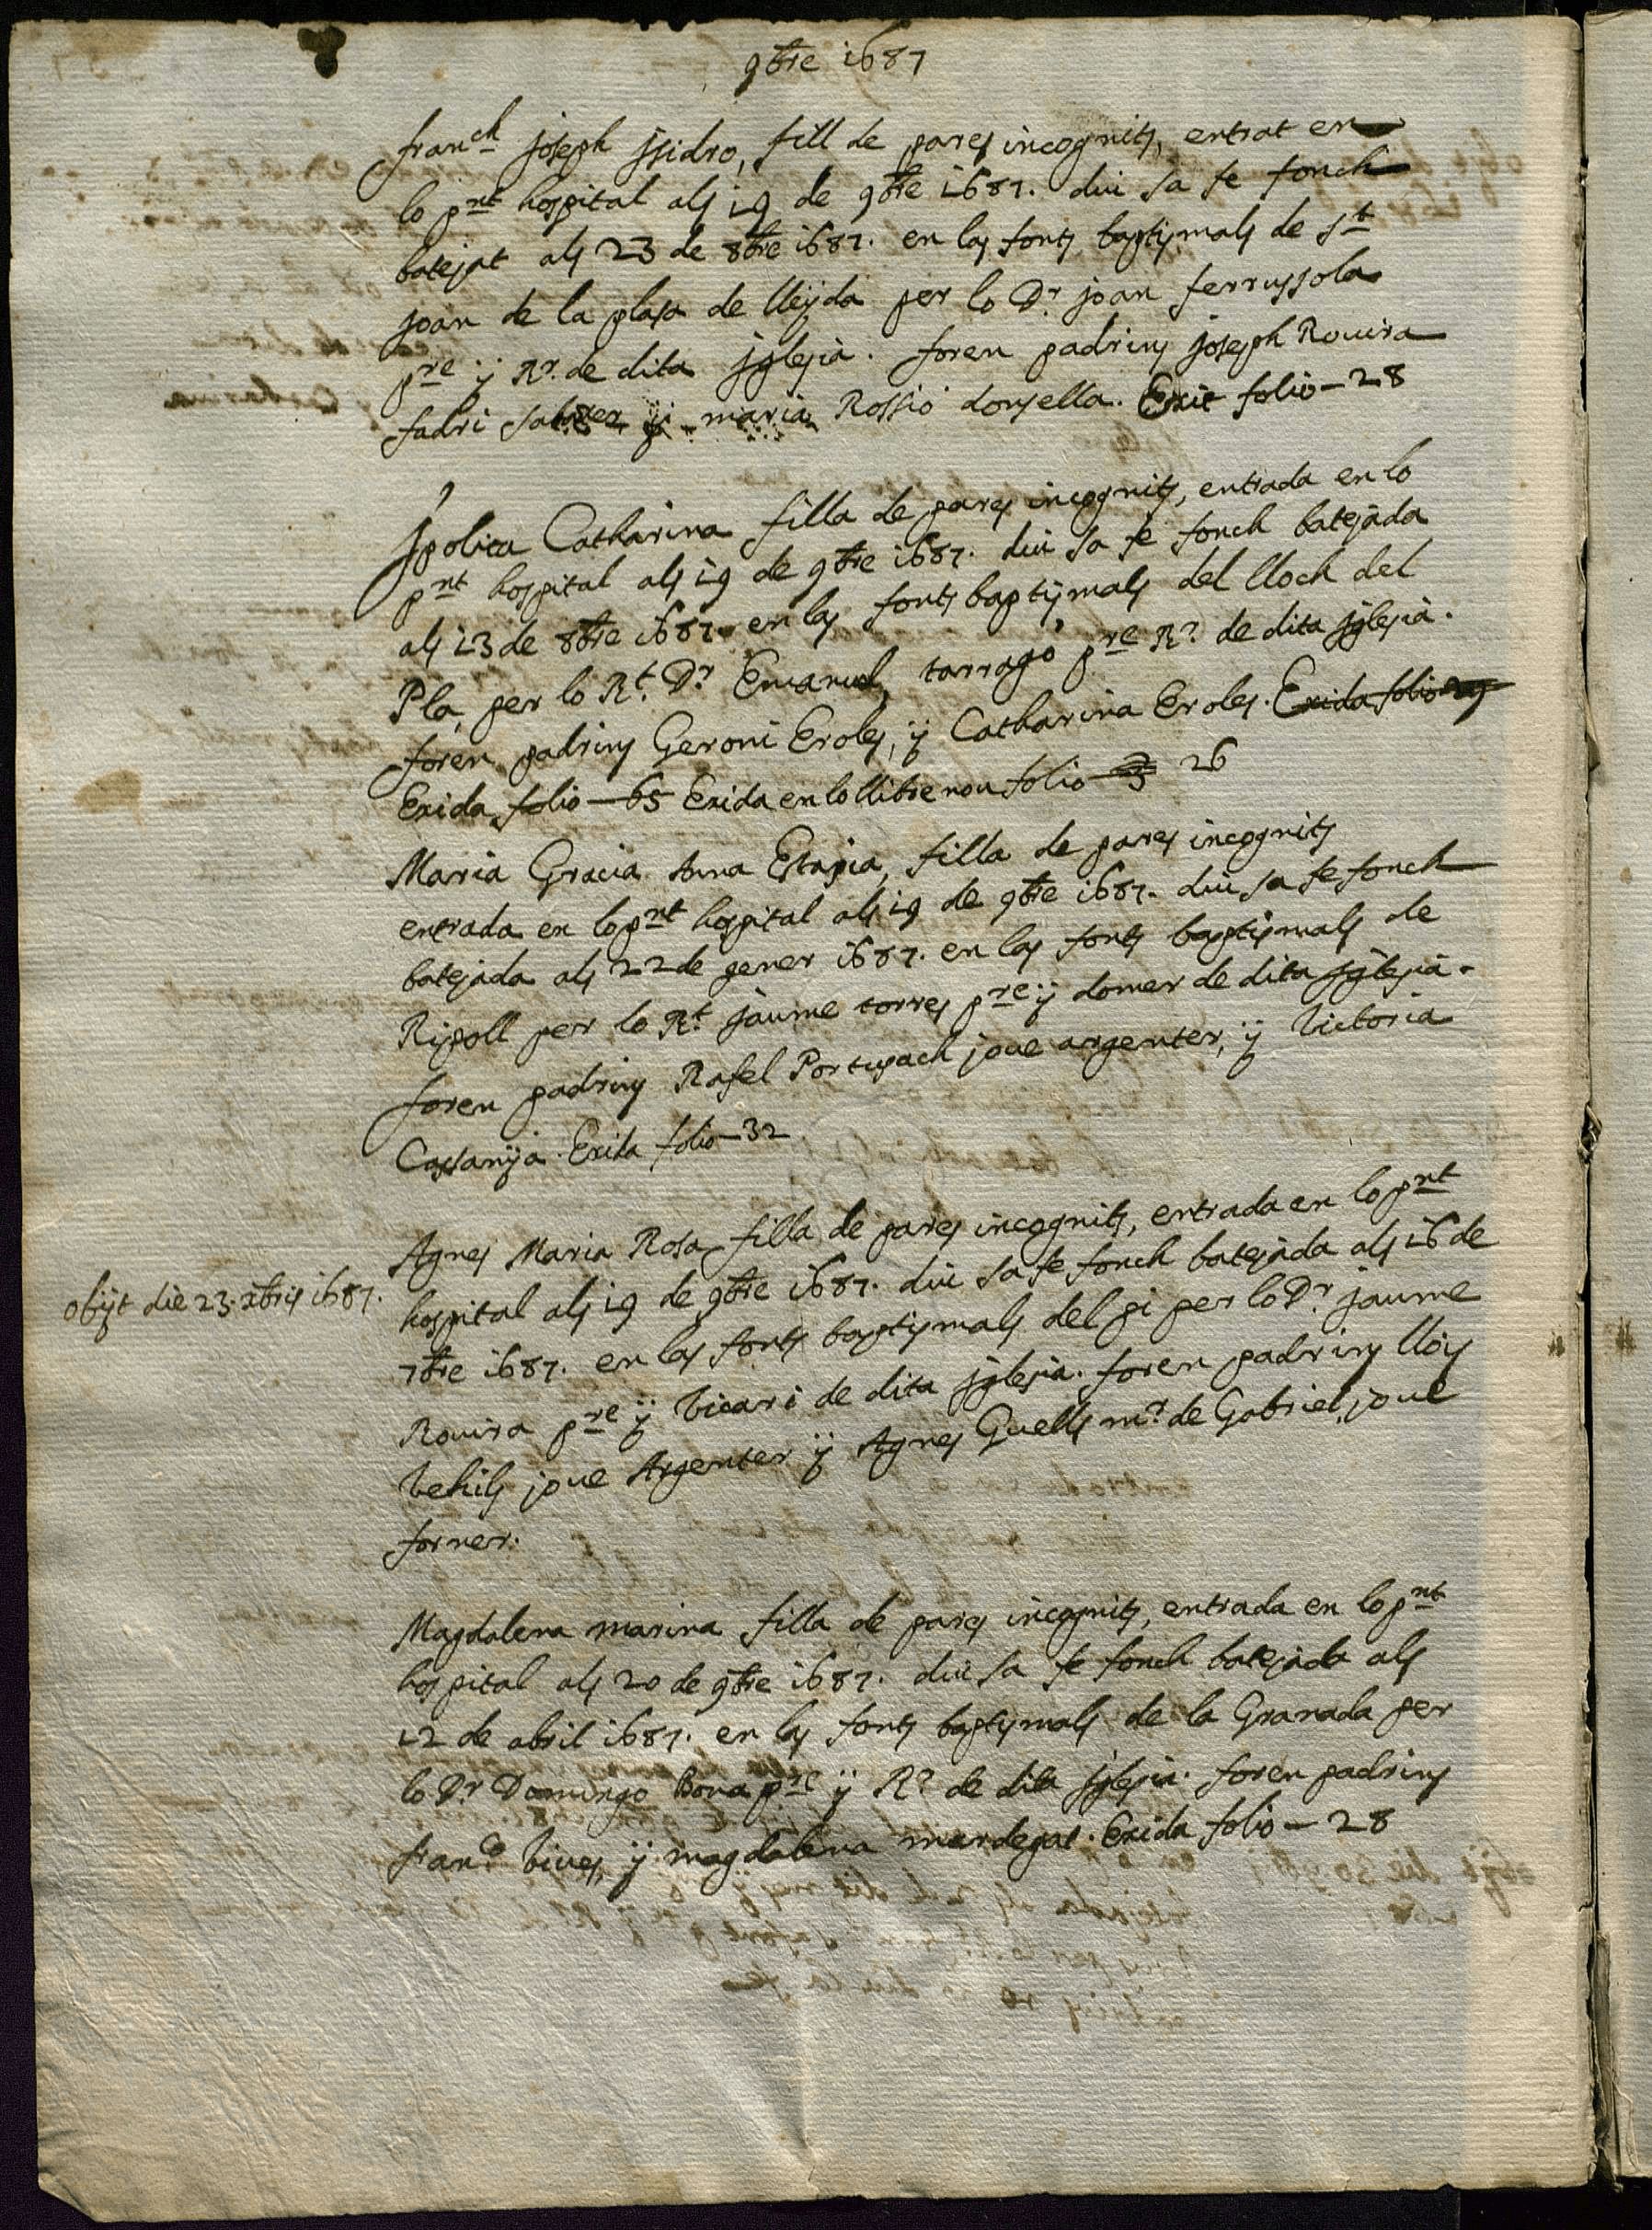 9bre 1687
franch joseph jsidro, fill de pares incognits, entrat en
lo pnt hospital als 19 de 9bre 1687. diu sa fe fonch
batejat als 23 de 8bre 1687. en las fonts baptismals de st
joan de la plasa de lleyda per lo Dr. joan ferrussola
pre ÿ Rr. de dita jglesia. foren padrins joseph Rovira
fadri sabater ÿ maria Rossio donsella. Exit folio - 28
jpolita Catharina filla de pares incognits, entrada en lo
pnt hospital als 19 de 9bre 1687. diu sa fe fonch batejada
als 13 de 8bre 1687. en las fonts baptismals del lloch del
Pla, per lo Rt. Dr. Emanuel tarrago pre Rr. de dita jglesia.
foren padrins Geroni Eroles, ÿ Catharina Eroles. Exida folio
Exida folio - 65 Exida en lo llibre nou folio 26
Maria Gracia Anna Estasia, filla de pares incognits
entrada en lo pnt hospital als 19 de 9bre 1687. diu sa fe fonch
batejada als 22 de gener 1687. en las fonts baptismals de
Ripoll per lo Rt. jaume torres pre ÿ domer de dita jglesia.
foren padrins Rafel Portusach jove argenter, ÿ Victoria
Cassanÿa. Exida folio - 32
Agnes Maria Rosa, filla de pares incognits, entrada en lo pnt
obijt die 23. xbris 1687.
hospital als 19 de 9bre 1687. diu sa fe fonch batejada als 16 de
7bre 1687. en las fonts baptismals del pi per lo Dr. jaume
Rovira pre ÿ Vicari de dita jglesia. foren padrins lloÿs
Vehils jove Argenter ÿ Agnes Guells mr. de Gabriel jove
forner.
Magdalena marina filla de pares incognits, entrada en lo pnt
hospital als 20 de 9bre 1687. diu sa fe fonch batejada als
12 de abril 1687. en las fonts baptismals de la Granada per
lo Dr. Domingo Bona pre ÿ Rr. de dita jglesia. foren padrins
franco. Vives, ÿ magdalena mardegal. Exida folio - 28